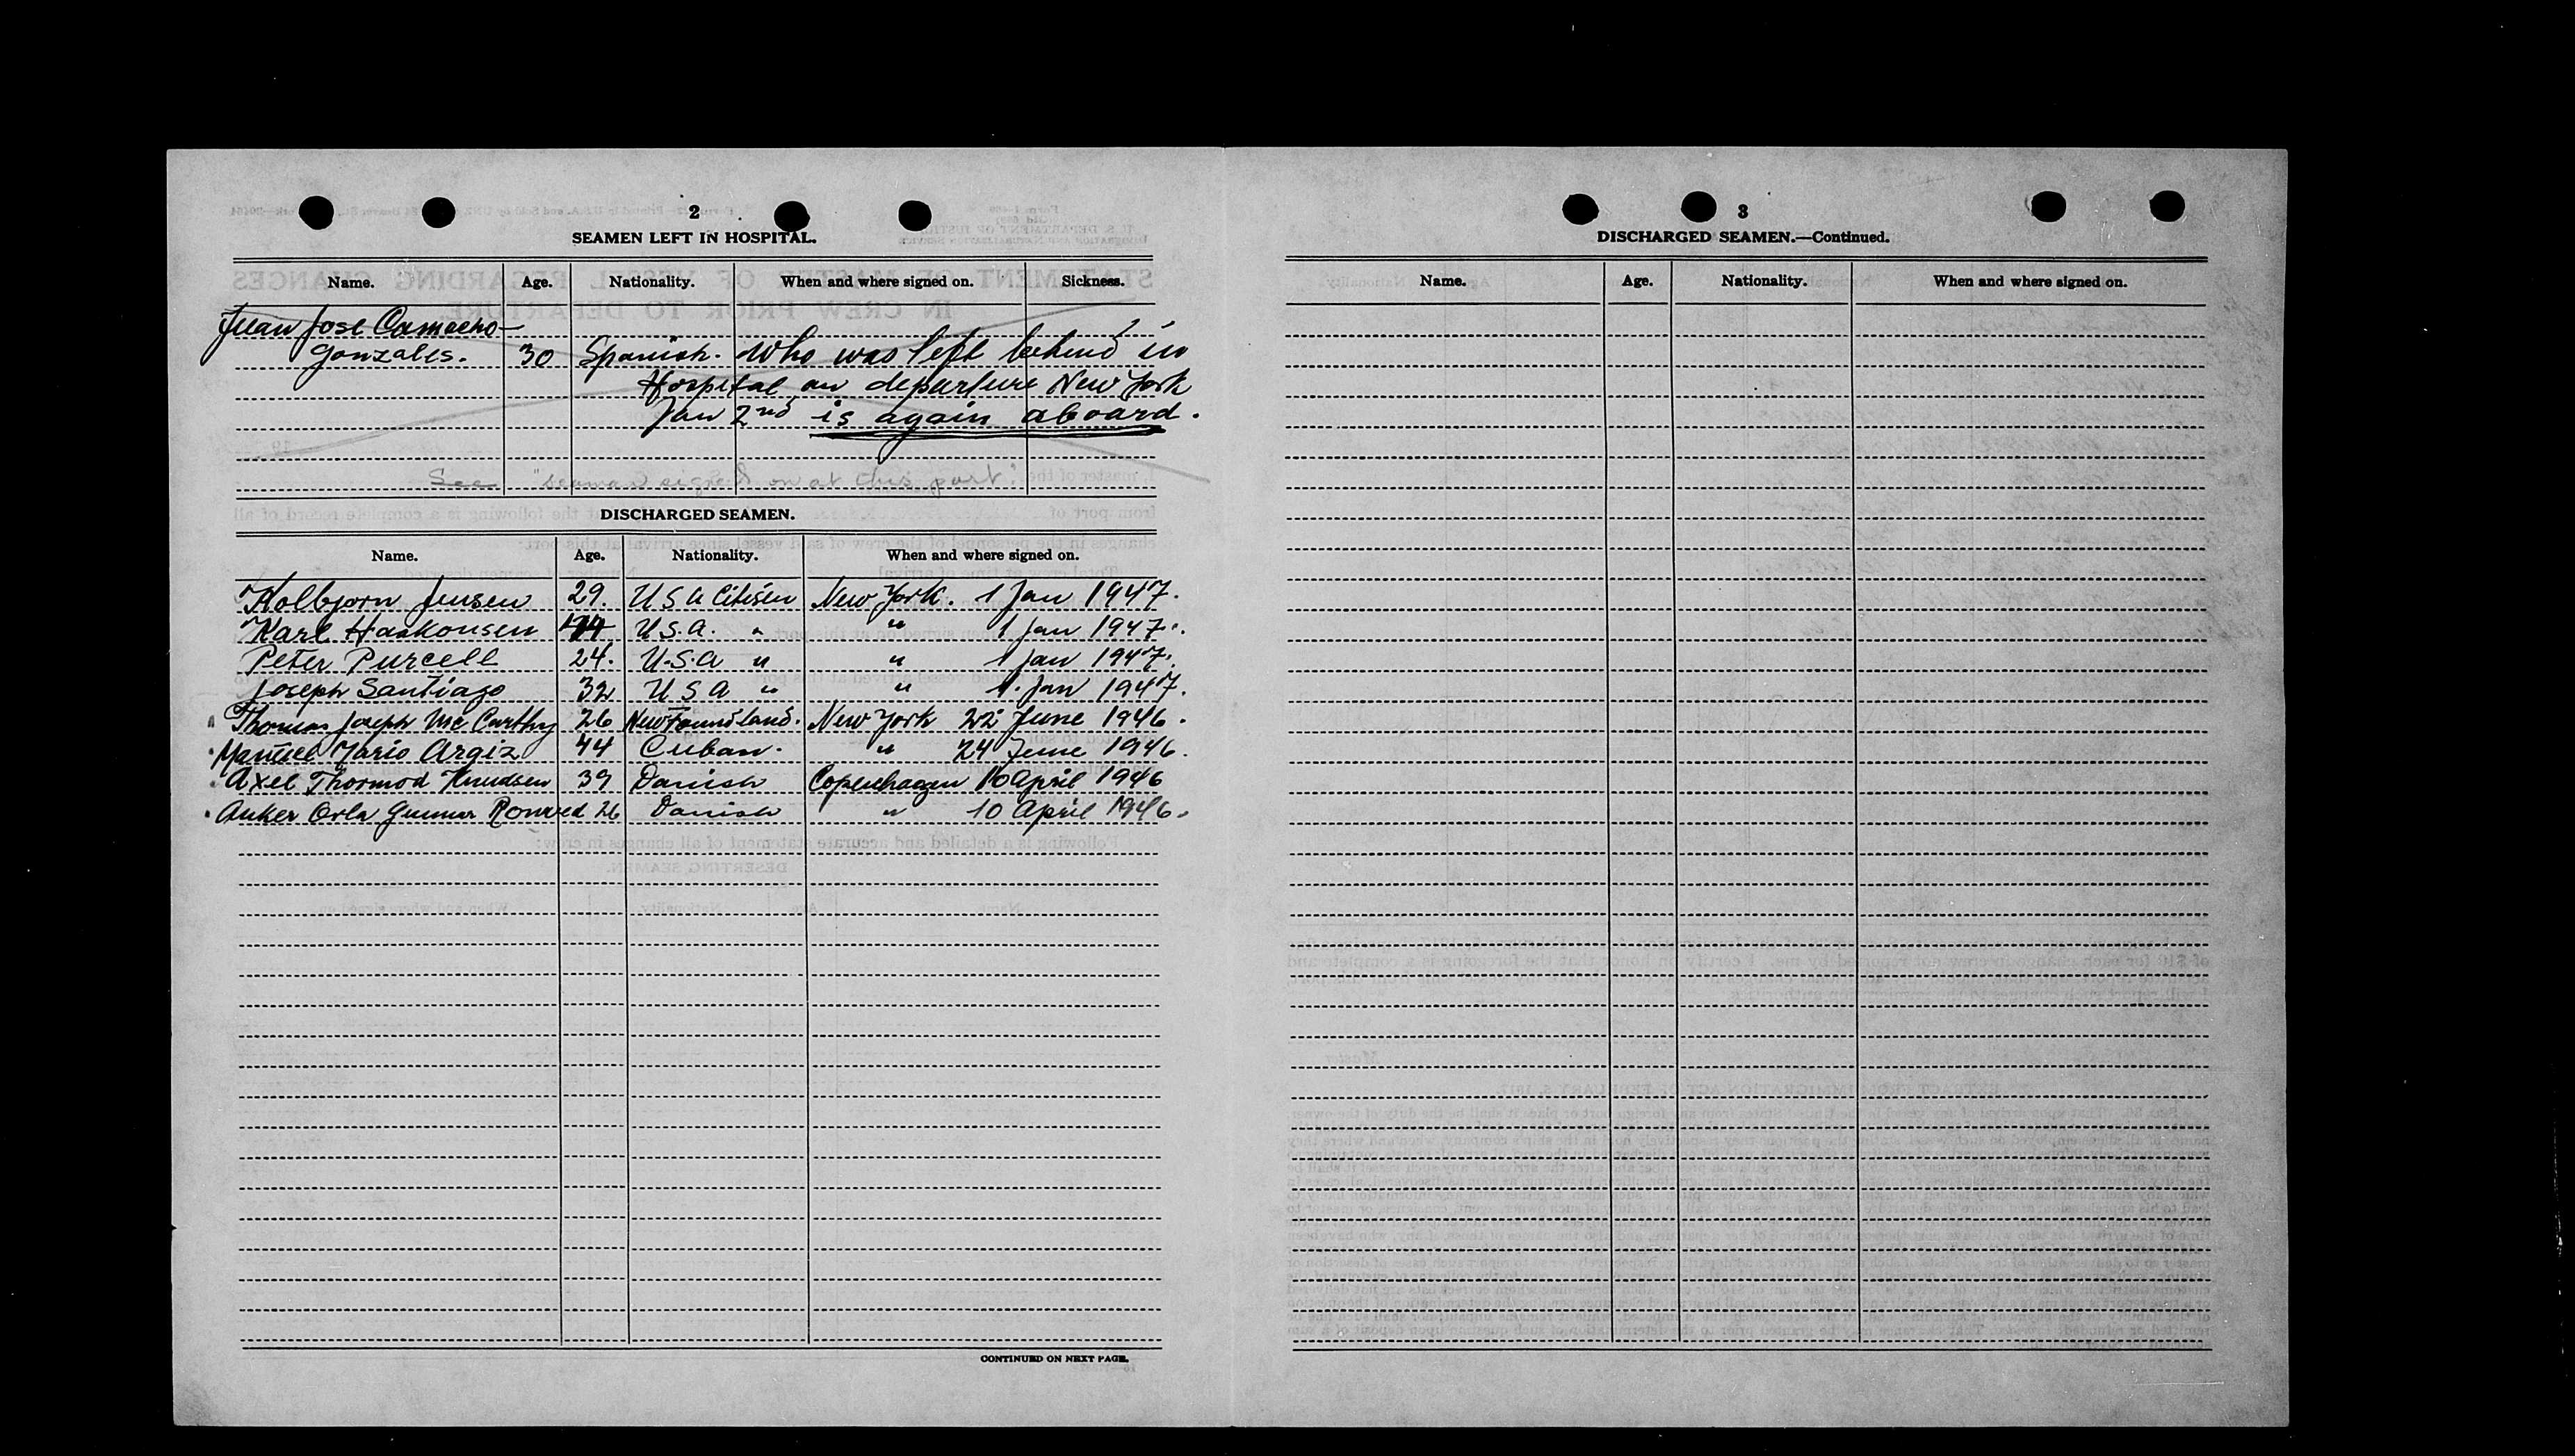 2
SEAMEN LEFT IN HOSPITAL.
Name. Age. Nationality. When and where signed on. Sickness.
Juan Jose Camacho-
Gonzales. 30 Spanish. Who was left behind in
Hospital on departure New York
Jan 2nd is again aboard.
See "seaman signed on at this port".
DISCHARGED SEAMEN.
Name. Age. Nationality. When and where signed on.
Kolbjorn Jensen 29. USA Citisen New York. 1 Jan 1947.
Karl Haakonsen U.S.A. " " 1 Jan 1947.
Peter Purcell 24. U.S.A " " 1 Jan 1947.
Joseph Santiago 32 U S A " " 1. Jan 1947.
" Thomas Joseph Mc Carthy 26 Newfoundland. New York 22 June 1946.
Manuel Mario Argiz 44 Cuban. " 24 June 1946.
Axel Thormod Knudsen 39 Danish Copenhagen 10 April 1946
Anker Orla Gunnar 26 Danish " 10 April 1946.
CONTINUED ON NEXT PAGE.
3
DISCHARGED SEAMEN.—Continued.
Name. Age. Nationality. When and where signed on.